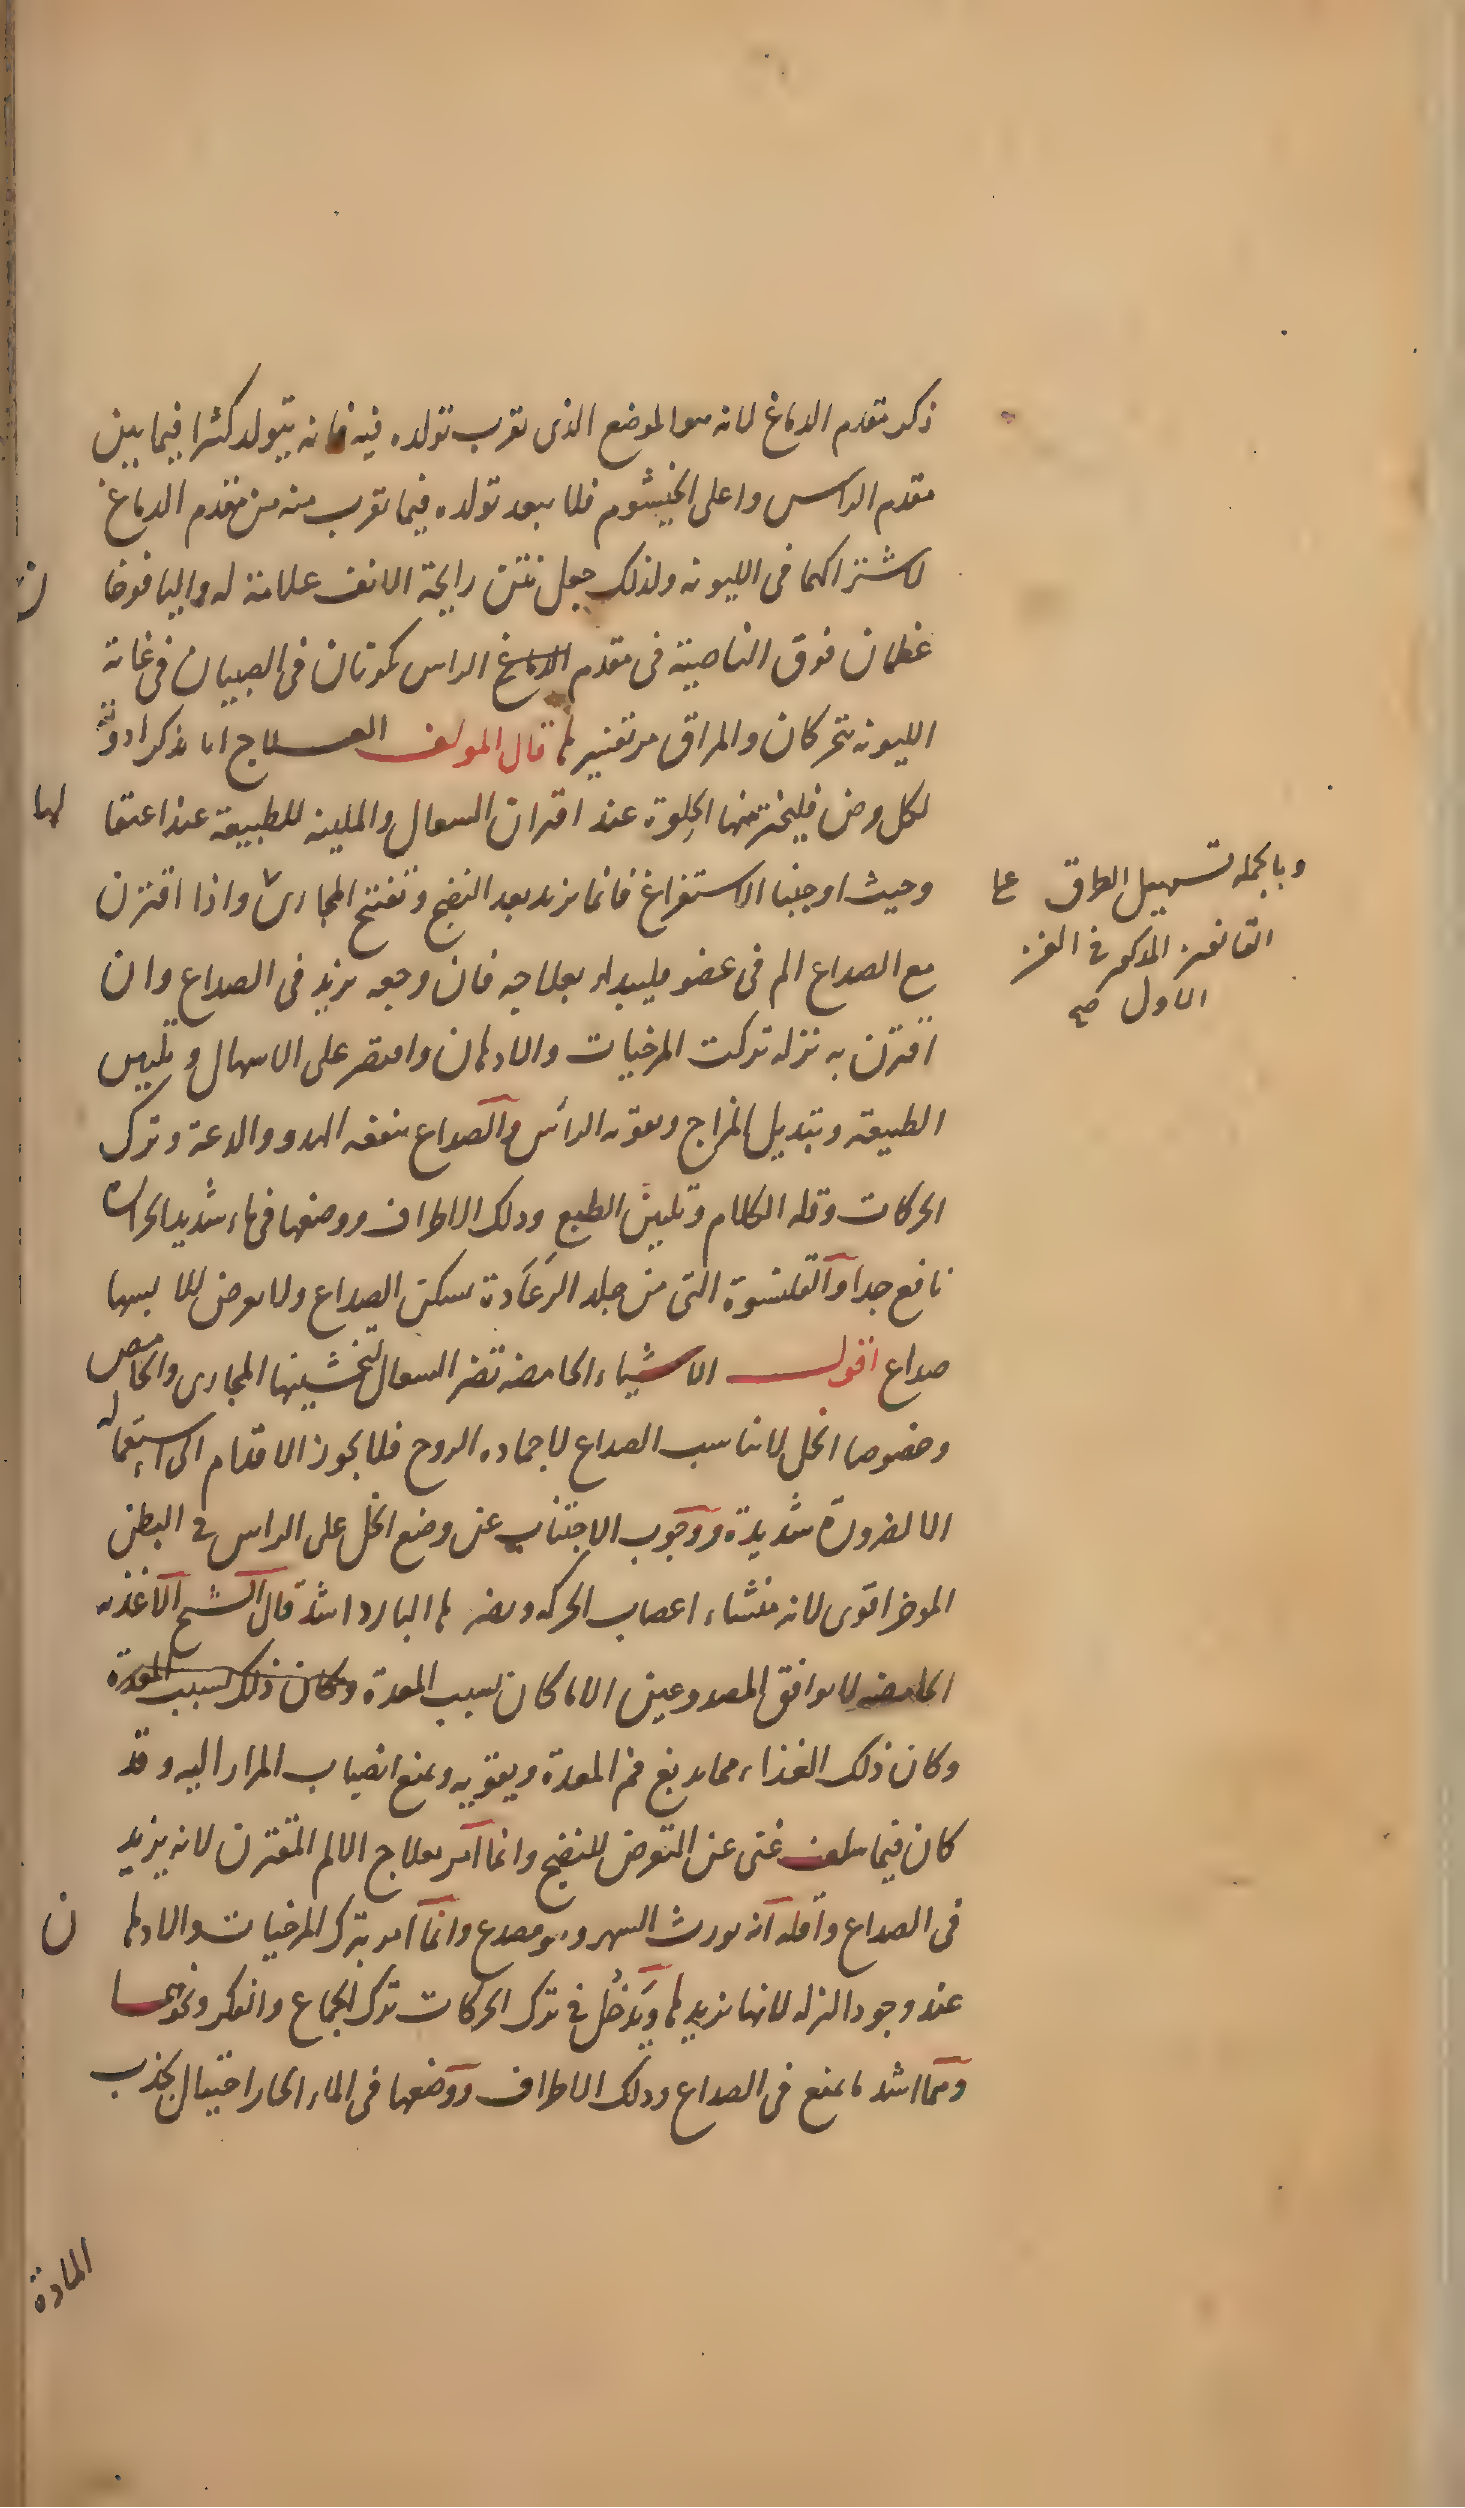 ذكر مقدم الدماغ لانه هو الموضع الذى يقرب تولده فيه فانه يتولد كثيرا فيما بين
مقدم الراس واعلى الخيشوم فلا يبعد تولده فيما يقرب منه من مقدم الدماغ
لاشتراكهما فى الليونه ولذلك جعل نتن رايحة الانف علامة له واليافوخا
ن
عظمان فوق الناصية فى مقدم الدماغ الراس يكونان فى الصبيان فى غاية
الليونه يتحركان والمراق مر تفسيرها قال المولف العلاج انا نذكر ادوية
لكل مرض فليختر منها الحلوة عند اقتران السعال والملينه للطبيعة عند اعتقا
لها
وحيث اوجبنا الاستفراغ فانما نريد بعد النضج وتفتح المجارى واذا اقترن
وبالجمله تسهيل الطرق على
القانون المذكور فى الفن
الاول صح
مع الصداع الم فى عضو فليبدا بعلاجه فان وجعه يزيد فى الصداع وان
اقترن به نزله تركت المرخيات والادهان واقتصر على الاسهال وتليين
الطبيعة وتبديل المزاج وتقويه الرأس والصداع ينفعه الهدو والدعة وترك
الحركات وقله الكلام وتليين الطبع ودلك الاطراف ووضعها فى ماء شديد الحرارة
نافع جدا والقلنسوة التى من جلد الرعادة تسكن الصداع ولا يعرض للابسها
صداع اقول الاشياء الحامضه تضر السعال لتخشينها المجارى والحامض
وخصوصا الخل لا يناسب الصداع لاجماده الروح فلا يجوز الاقدام الى استعماله
الا لضرورة شديدة ووجوب الاجتناب عن وضع الخل على الراس فى البطن
الموخر اقوى لانه منشاء اعصاب الحركه وضرها البارد اشد قال الشيخ الاغذيه
الحامضه لا يوافق المصدوعين الا ما كان بسبب المعدة وكان ذلك بسبب المعدة
وكان ذلك الغذاء مما يدبغ فم المعدة ويقويه ويمنع انصباب المرار اليه وقد
كان فيما سلف غنى عن التعرض للنضج وانما امر بعلاج الالم المقترن لانه يزيد
فى الصداع واقله انه يورث السهر وهو مصدع وانما امر بترك المرخيات والادها
ن
عند وجود النزله لانها يزيدها ويدخل فى ترك الحركات ترك الجماع والفكر ونحوهما
وهما اشد ما يمنع فى الصداع ودلك الاطراف ووضعها فى الماء الحار احتيال لجذب
المادة